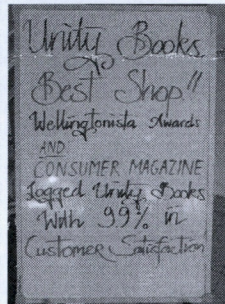 Unity Books
Best Shop!!
Wellingtonista Awards
AND
CONSUMER MAGAZINE
Logged Unity Books
With 99% in
Customer Satisfaction